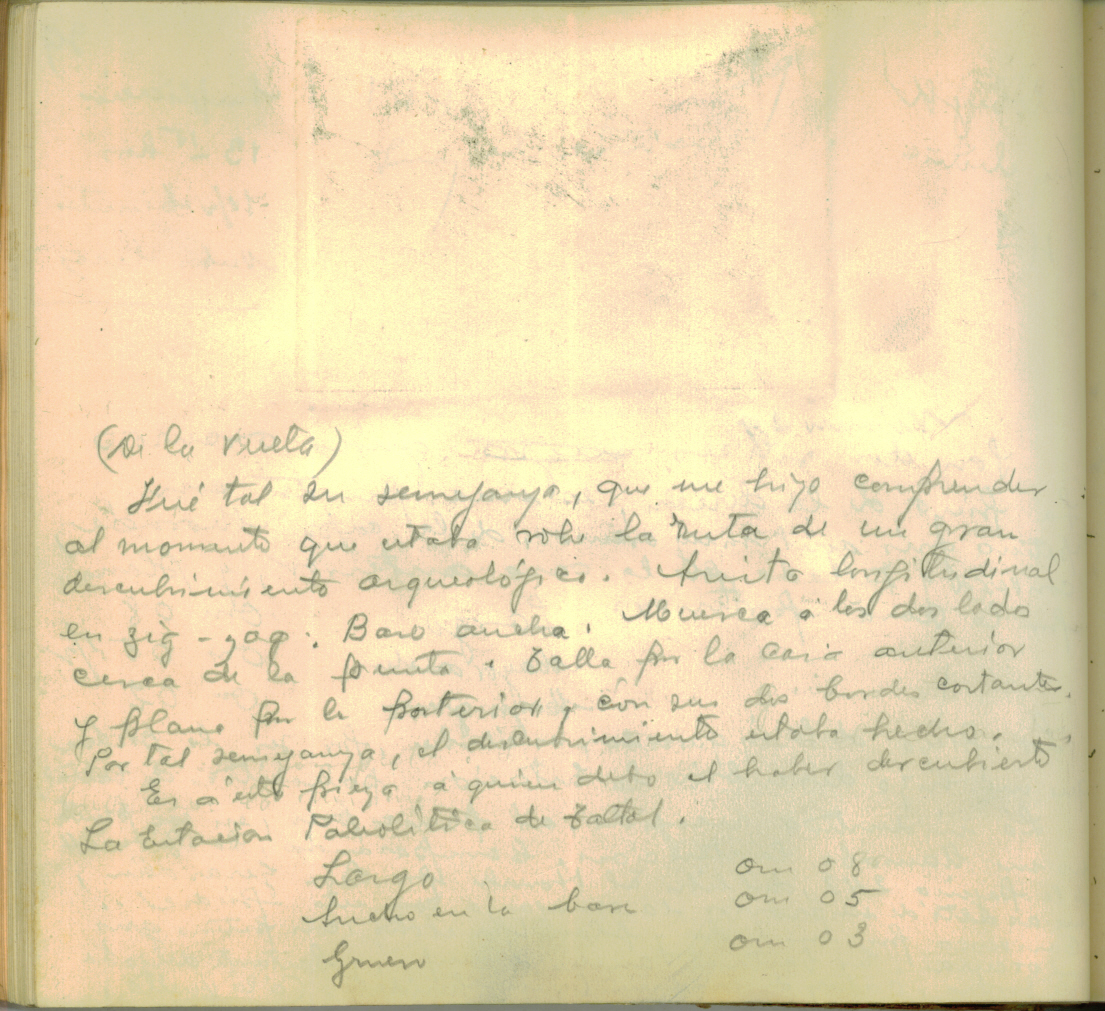 (De la vuelta)
Fué tal su semejanza, que me hizo comprender
al momento que estaba sobre la ruta de un gran
descubrimiento arqueológico. Arista longitudinal
en zig-zag. Base ancha. Muesca á los dos lados
cerca de la punta. Talla por la cara anterior
y plana por la posterior, con sus dos bordes cortantes.
Por tal semejanza, el descubrimiento estaba hecho.
Es á esta pieza á quien debo el haber descubierto
La Estacion Paleolítica de Taltal.
Largo 0m 08
Ancho en la base 0m 05
Grueso 0m 03